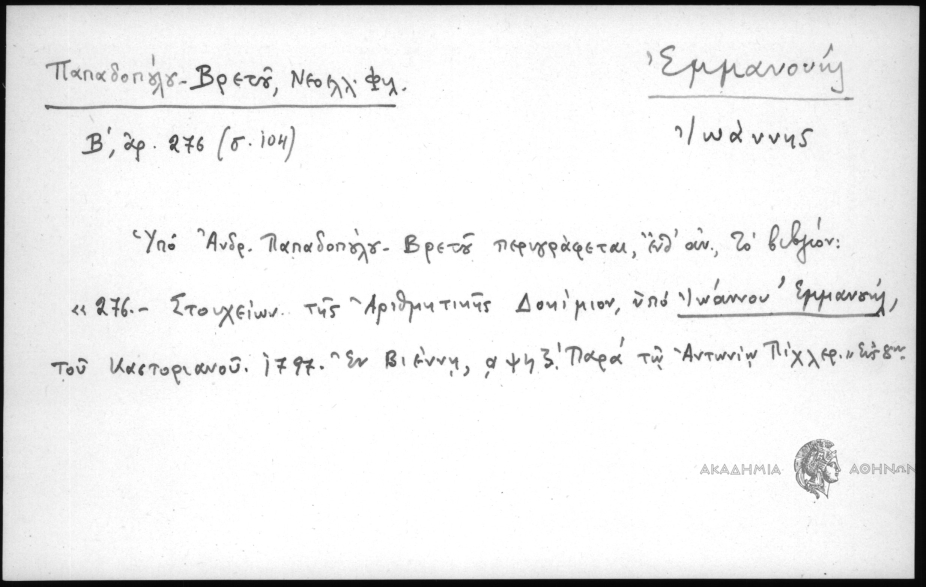 Παπαδοπούλου-Βρετοῦ, Νεοελλ. Φιλ.
Ἐμμανουήλ
Β', ἀρ. 276 (σ. 104)
Ἰωάννης
Ὑπὸ Ἀνδρ. Παπαδοπούλου-Βρετοῦ περιγράφεται, ἔνθ' ἀν., τὸ βιβλίον:
«276.- Στοιχείων τῆς Ἀριθμητικῆς Δοκίμιον, ὑπὸ Ἰωάννου Ἐμμανουήλ,
τοῦ Καστοριανοῦ. 1797. Ἐν Βιέννῃ, αψηζ. Παρὰ τῷ Ἀντωνίῳ Πίχλερ.»
ΑΚΑΔΗΜΙΑ ΑΘΗΝΩΝ